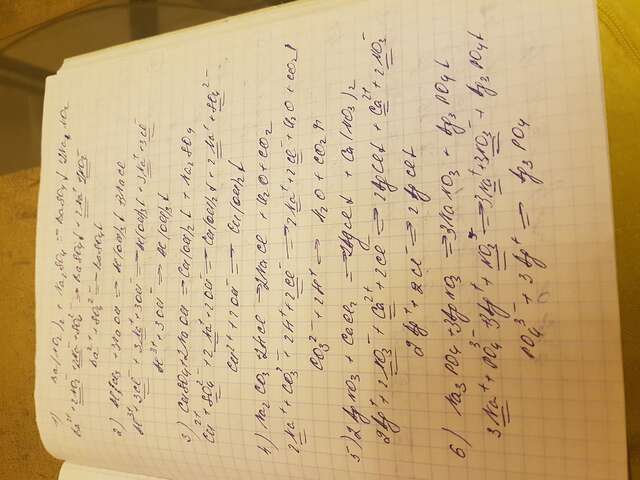 1) Ba(NO₃)₂ + Na₂SO₄ = BaSO₄↓ 2NaNO₃
Ba²⁺ + 2NO₃⁻ + 2Na⁺ + SO₄²⁻ = BaSO₄↓ + 2Na⁺ + 2NO₃⁻
Ba²⁺ + SO₄²⁻ = BaSO₄↓
2) AlCl₃ + 3NaOH = Al(OH)₃↓ 3NaCl
Al³⁺ + 3Cl⁻ + 3Na⁺ + 3OH⁻ = Al(OH)₃↓ + 3Na⁺ + 3Cl⁻
Al³⁺ + 3OH⁻ = Al(OH)₃↓
3) CuSO₄ + 2NaOH = Cu(OH)₂↓ + Na₂SO₄
Cu²⁺ + SO₄²⁻ + 2Na⁺ + 2OH⁻ = Cu(OH)₂↓ + 2Na⁺ + SO₄²⁻
Cu²⁺ + 2OH⁻ = Cu(OH)₂↓
4) Na₂CO₃ 2HCl = 2NaCl + H₂O + CO₂
2Na⁺ + CO₃²⁻ + 2H⁺ + 2Cl⁻ = 2Na⁺ + 2Cl⁻ + H₂O + CO₂↑
CO₃²⁻ + 2H⁺ = H₂O + CO₂↑
5) 2AgNO₃ + CaCl₂ = 2AgCl↓ + Ca(NO₃)₂
2Ag⁺ + 2NO₃⁻ + Ca²⁺ + 2Cl⁻ = 2AgCl↓ + Ca²⁺ + 2NO₃⁻
2Ag⁺ + 2Cl⁻ = 2AgCl↓
6) Na₃PO₄ + 3AgNO₃ = 3NaNO₃ + Ag₃PO₄↓
3Na⁺ + PO₄³⁻ 3Ag⁺ + NO₃⁻ = 3Na⁺ + 3NO₃⁻ + Ag₃PO₄↓
PO₄³⁻ + 3Ag⁺ = Ag₃PO₄